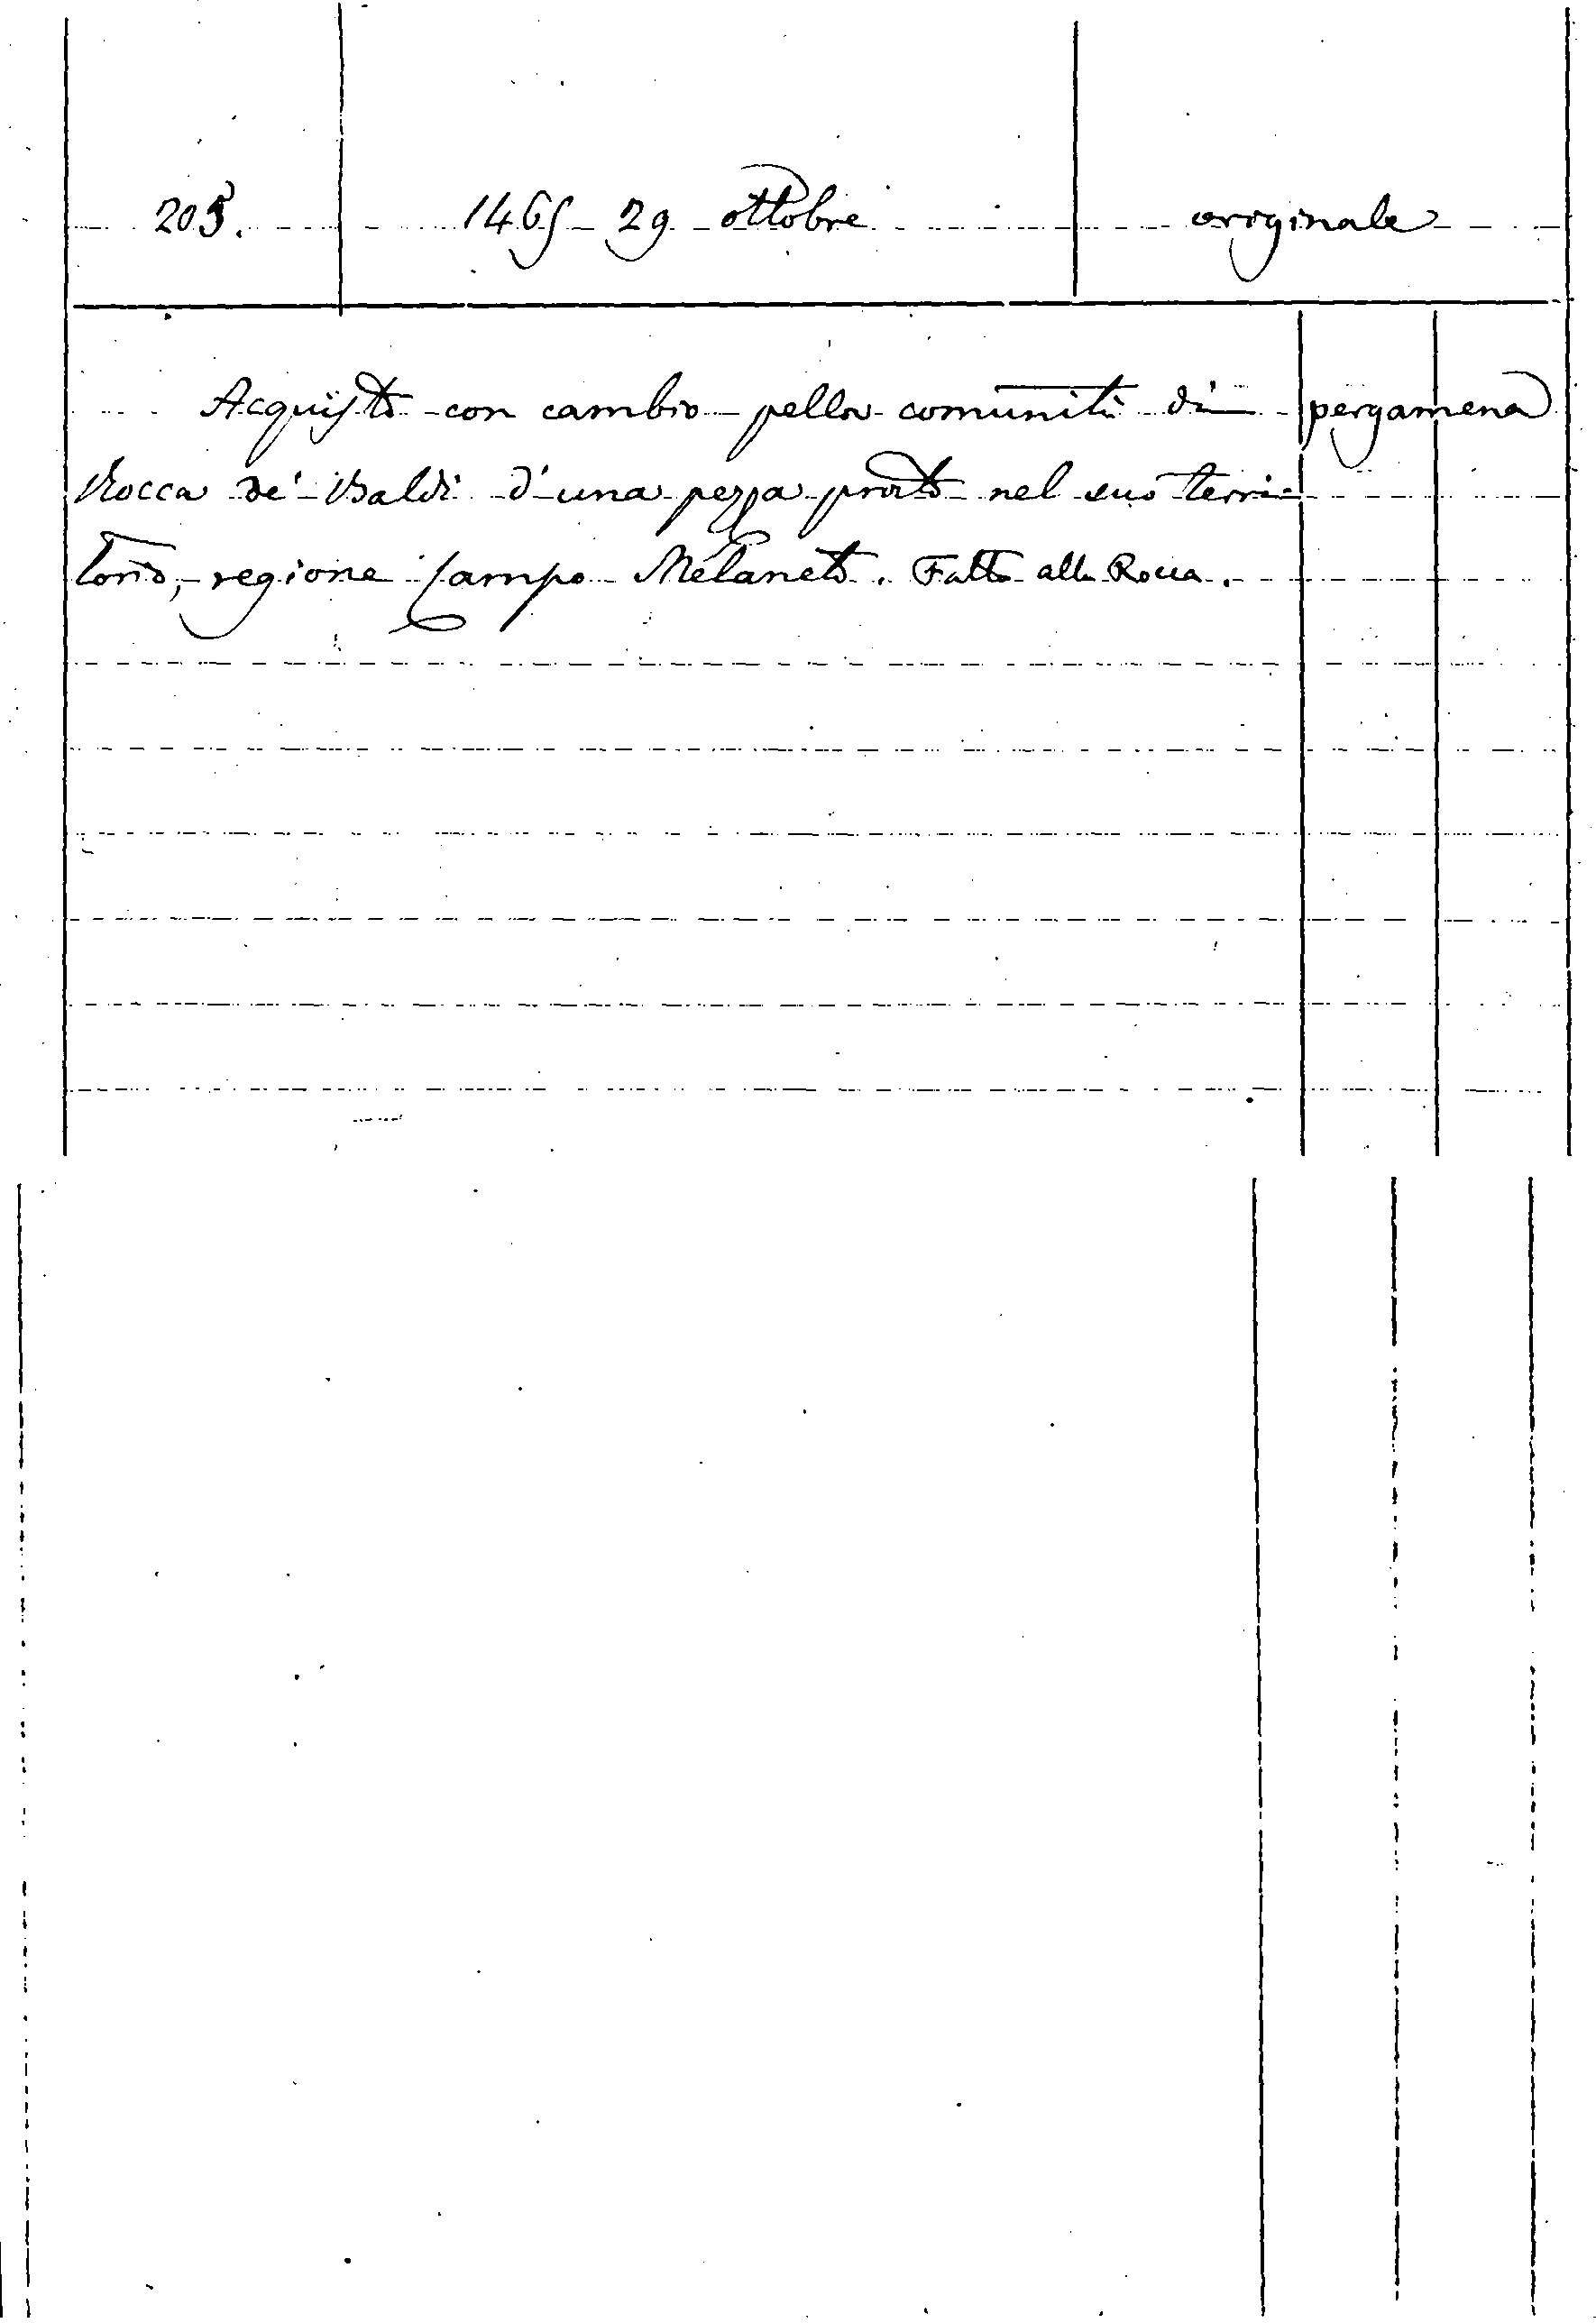 205. 1465 29 ottobre originale
Acquisto con cambio pella comunità di pergamena
Rocca de' Baldi d'una pezza prato nel suo terri-
torio, regione Campo Melaneto. Fatto alla Rocca.